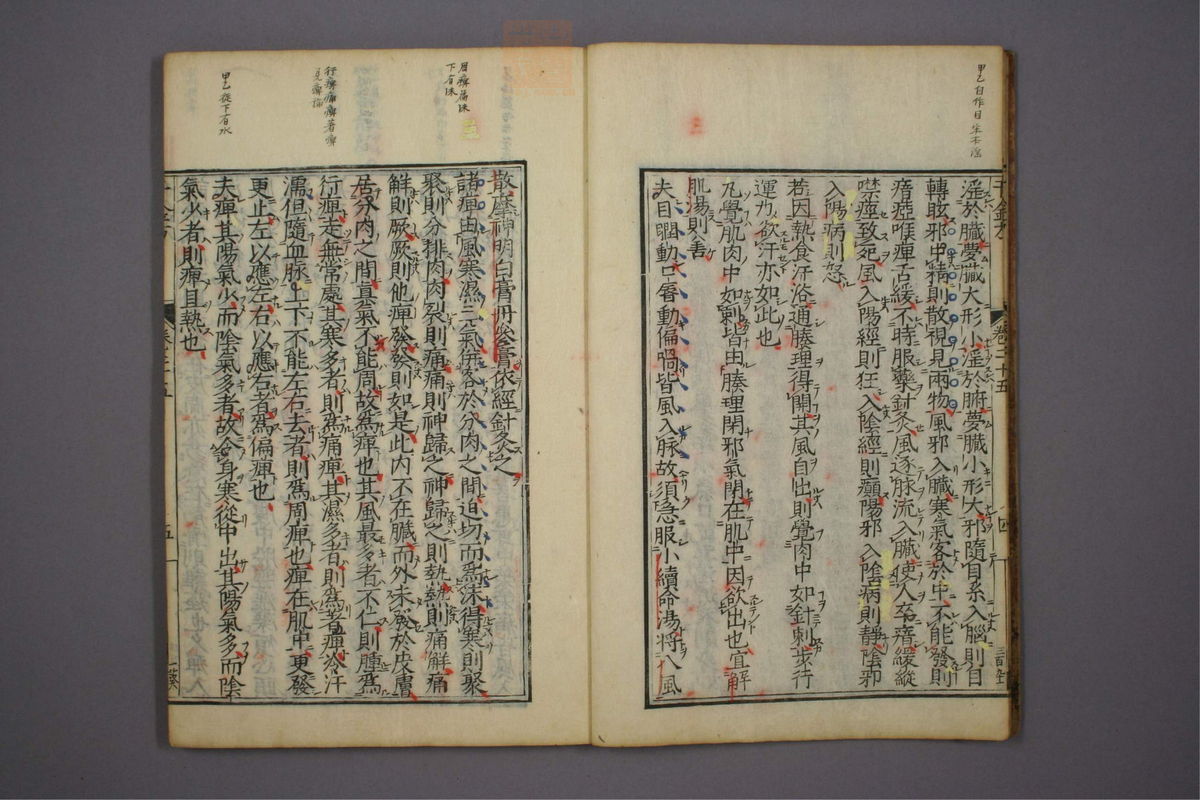 甲乙自作目坐不澁
淫於臓夢臓大形小淫於腑夢臓小形大邪隨目系入腦則目
轉眩邪中精則散視見兩物風邪入臓寒氣客於中不能發則
瘖瘂喉痺舌緩不時服藥針灸風逐脉流入臓使人卒瘖緩縱
噤痙致死風入陽經則狂入陰經則癲陽邪入陰病則靜陰邪
入陽病則怒
若因熱食汗浴通腠理得開其風自出則覺肉中如針刺步行
運力欲汗亦如此也
凡覺肌肉中如刺皆由腠理閉邪氣閉在肌中因欲出也宜解
肌湯則善
夫目瞤動口唇動偏喎皆風入脉故須急服小續命湯將八風
散摩神明白膏丹參膏依經針灸之
諸痺由風寒濕三氣併客於分肉之間迫切而爲沫得寒則聚
聚則分排肉肉裂則痛痛則神歸之神歸之則熱熱則痛解痛
解則厥厥則他痺發發則如是此內不在臓而外未發於皮膚
居分肉之間真氣不能周故爲痺也其風最多者不仁則腫爲
行痺走無常處其寒多者則爲痛痺其濕多者則爲著痺冷汗
濡但隨血脉上下不能左右去者則爲周痺也痺在肌中更發
更止左以應左右以應右者爲偏痺也
夫痺其陽氣少而陰氣多者故令身寒從中出其陽氣多而陰
氣少者則痺且熱也
下有沫
行痺痛痺著痺
見痺論
甲乙從下有水